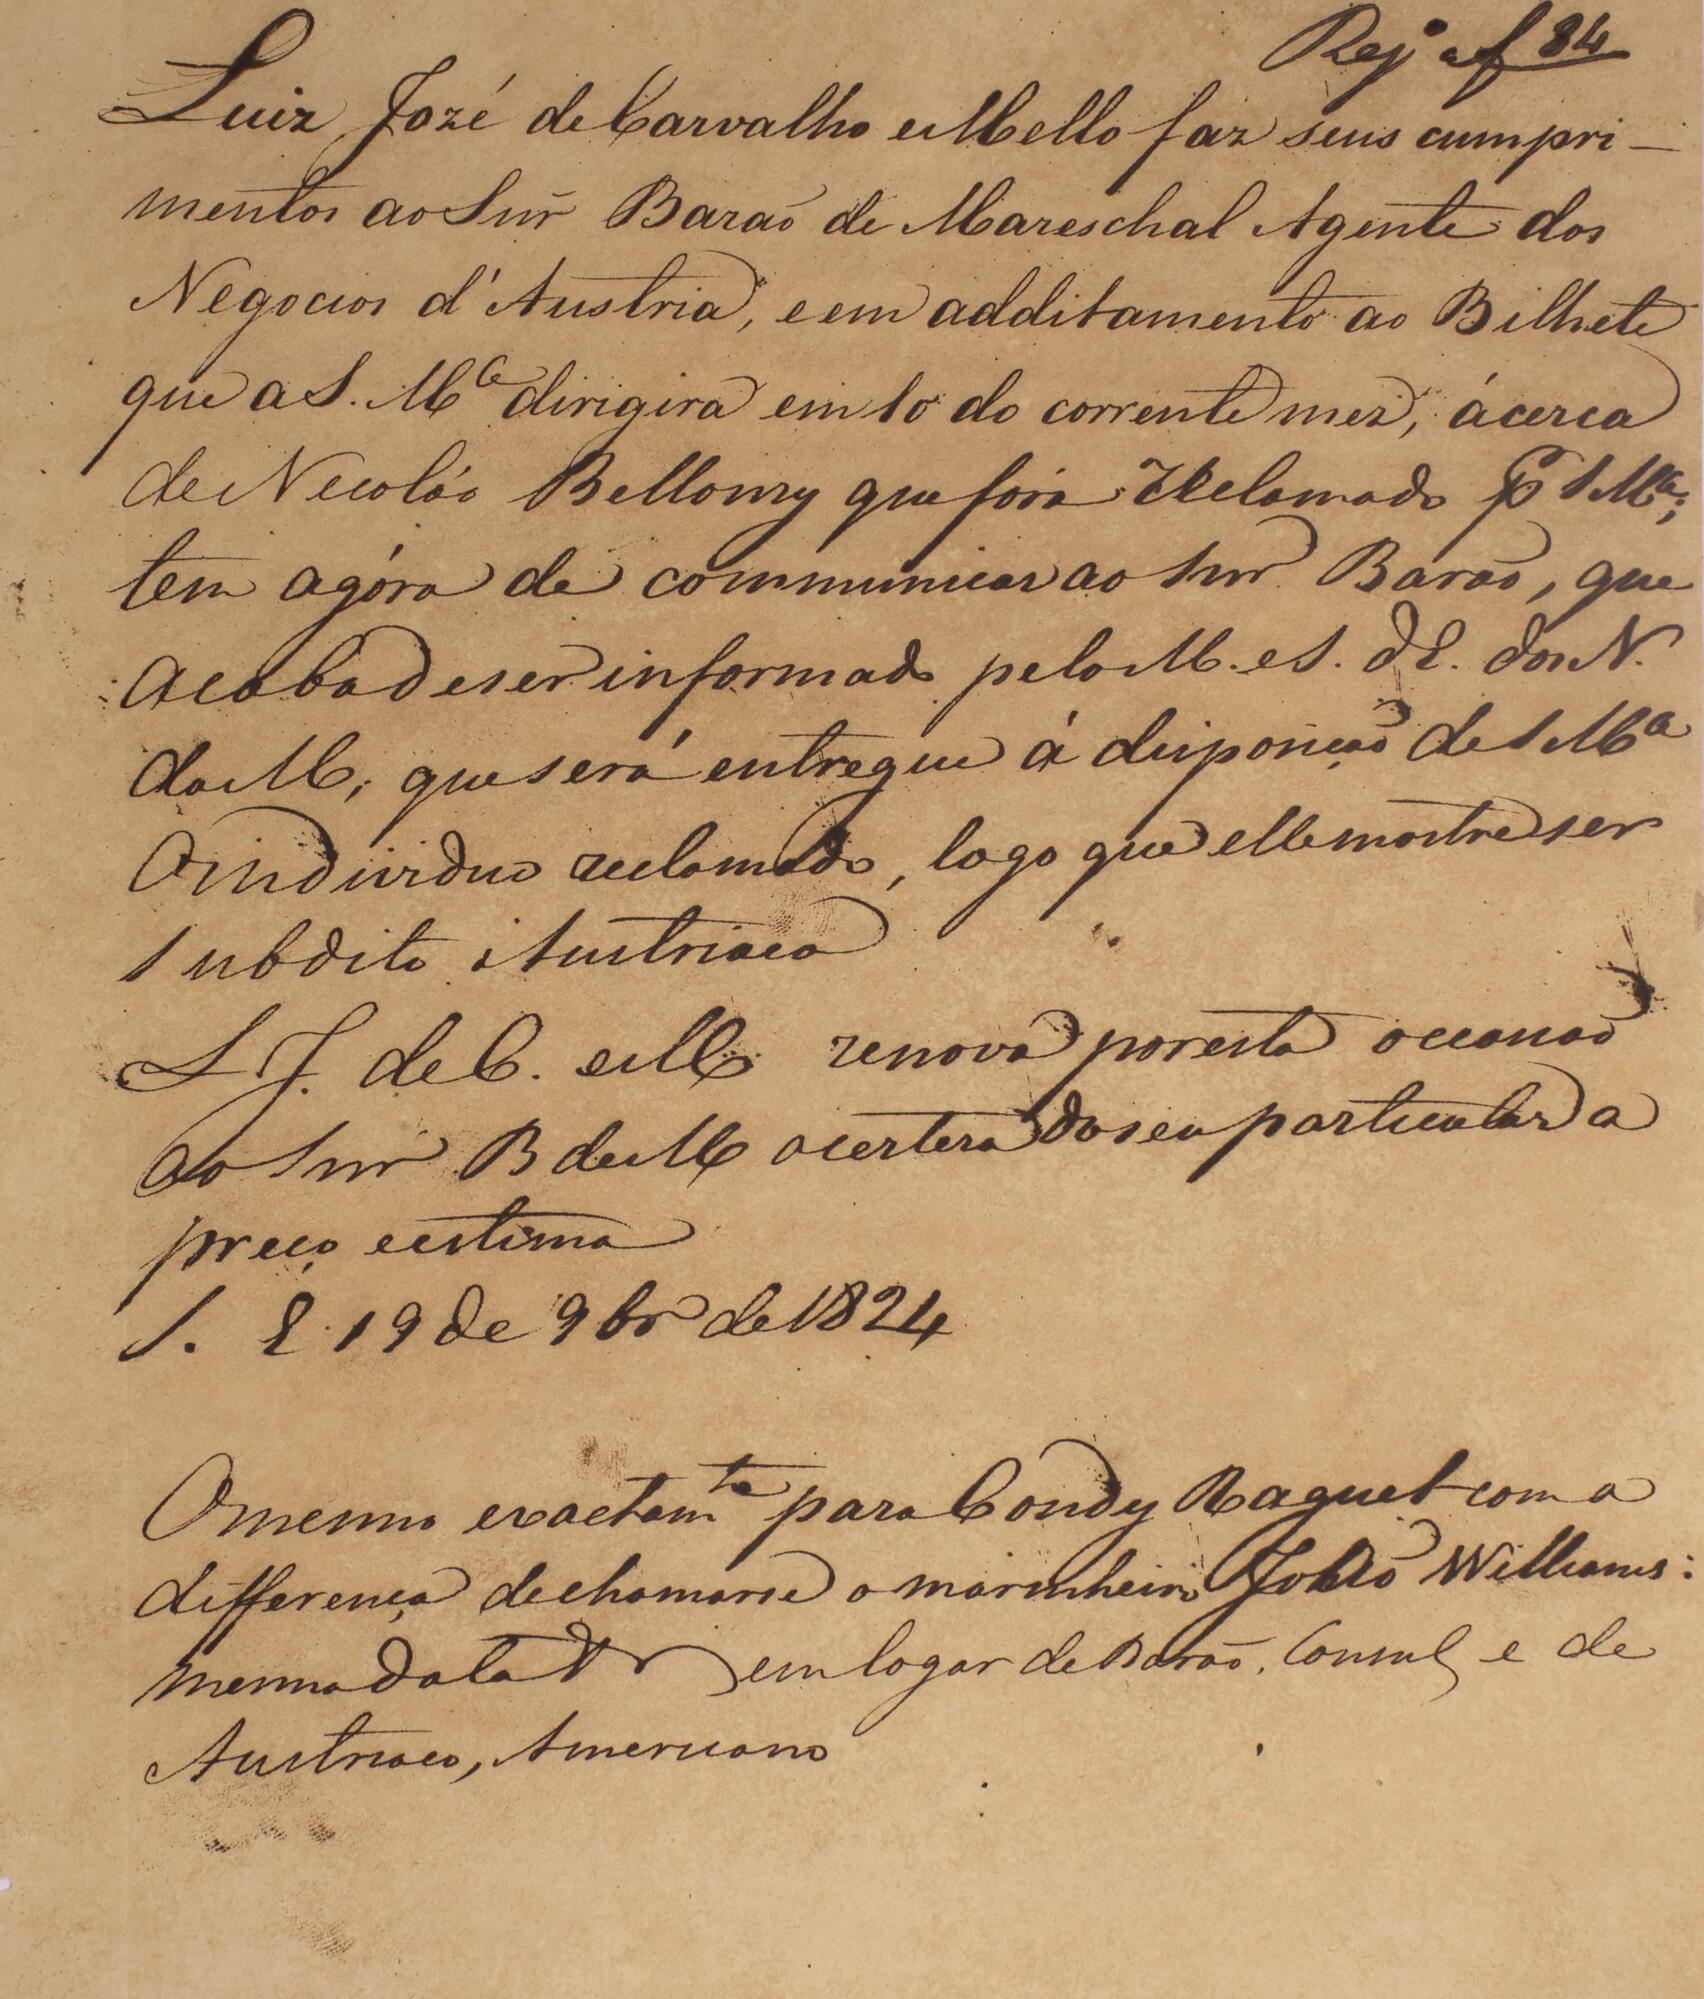 Reg.º a f 84
Luiz Jozé de Carvalho e Mello faz seus cumpri-
mentos ao Snr̃ Barão de Mareschal Agente dos
Negocios d'Austria, e em additamento ao Bilhete
que a S. M.ce dirigira em 10 do corrente mez, ácerca
de Necoláo Bellomy que fora Reclamado P S M.ce;
tem agóra de communicar ao Snr Barão, que
acaba de ser informado pelo M. e S. d'E. dos N.
da M, que será entregue á disposição de S M.ce
O individuo reclamado, logo que elle mostre ser
subdito Austriaco
L J. de C. e M renova por esta occasião
ao Snr B de M a certeza do seu particular a
preço e estima
S. E 19 de 9br de 1824
O mesmo exactam.te para Condy Raguet com a
differença de chamarse o marinheiro João Williams:
mesma data em logar de Barão, Consul, e de
Austriaco, Americano